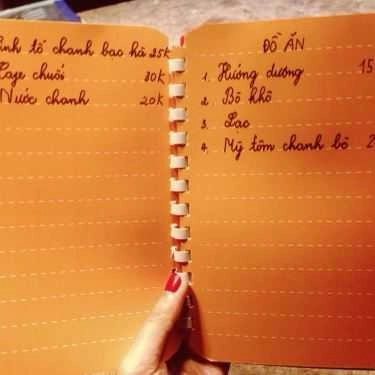 inh tố chanh bạc hà 25k
Cafe chuối 30k
Nước chanh 20k
ĐỒ ĂN
1. Hướng dương 15
2. Bò khô
3. Lạc
4. Mỳ tôm chanh bò 2